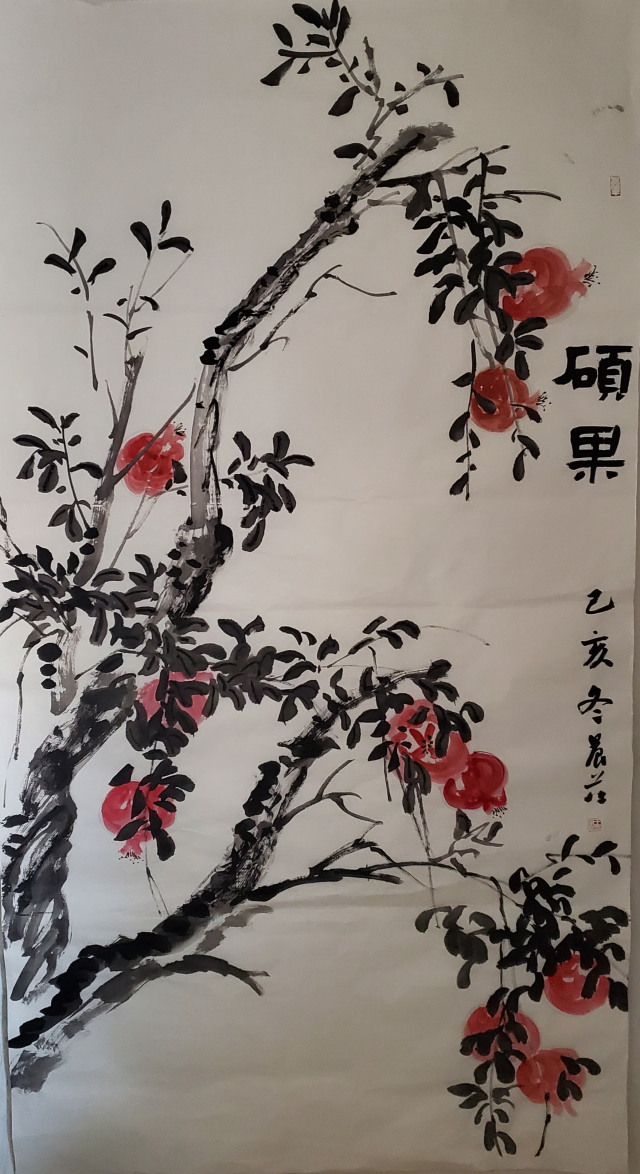 碩果
乙亥冬晨莊